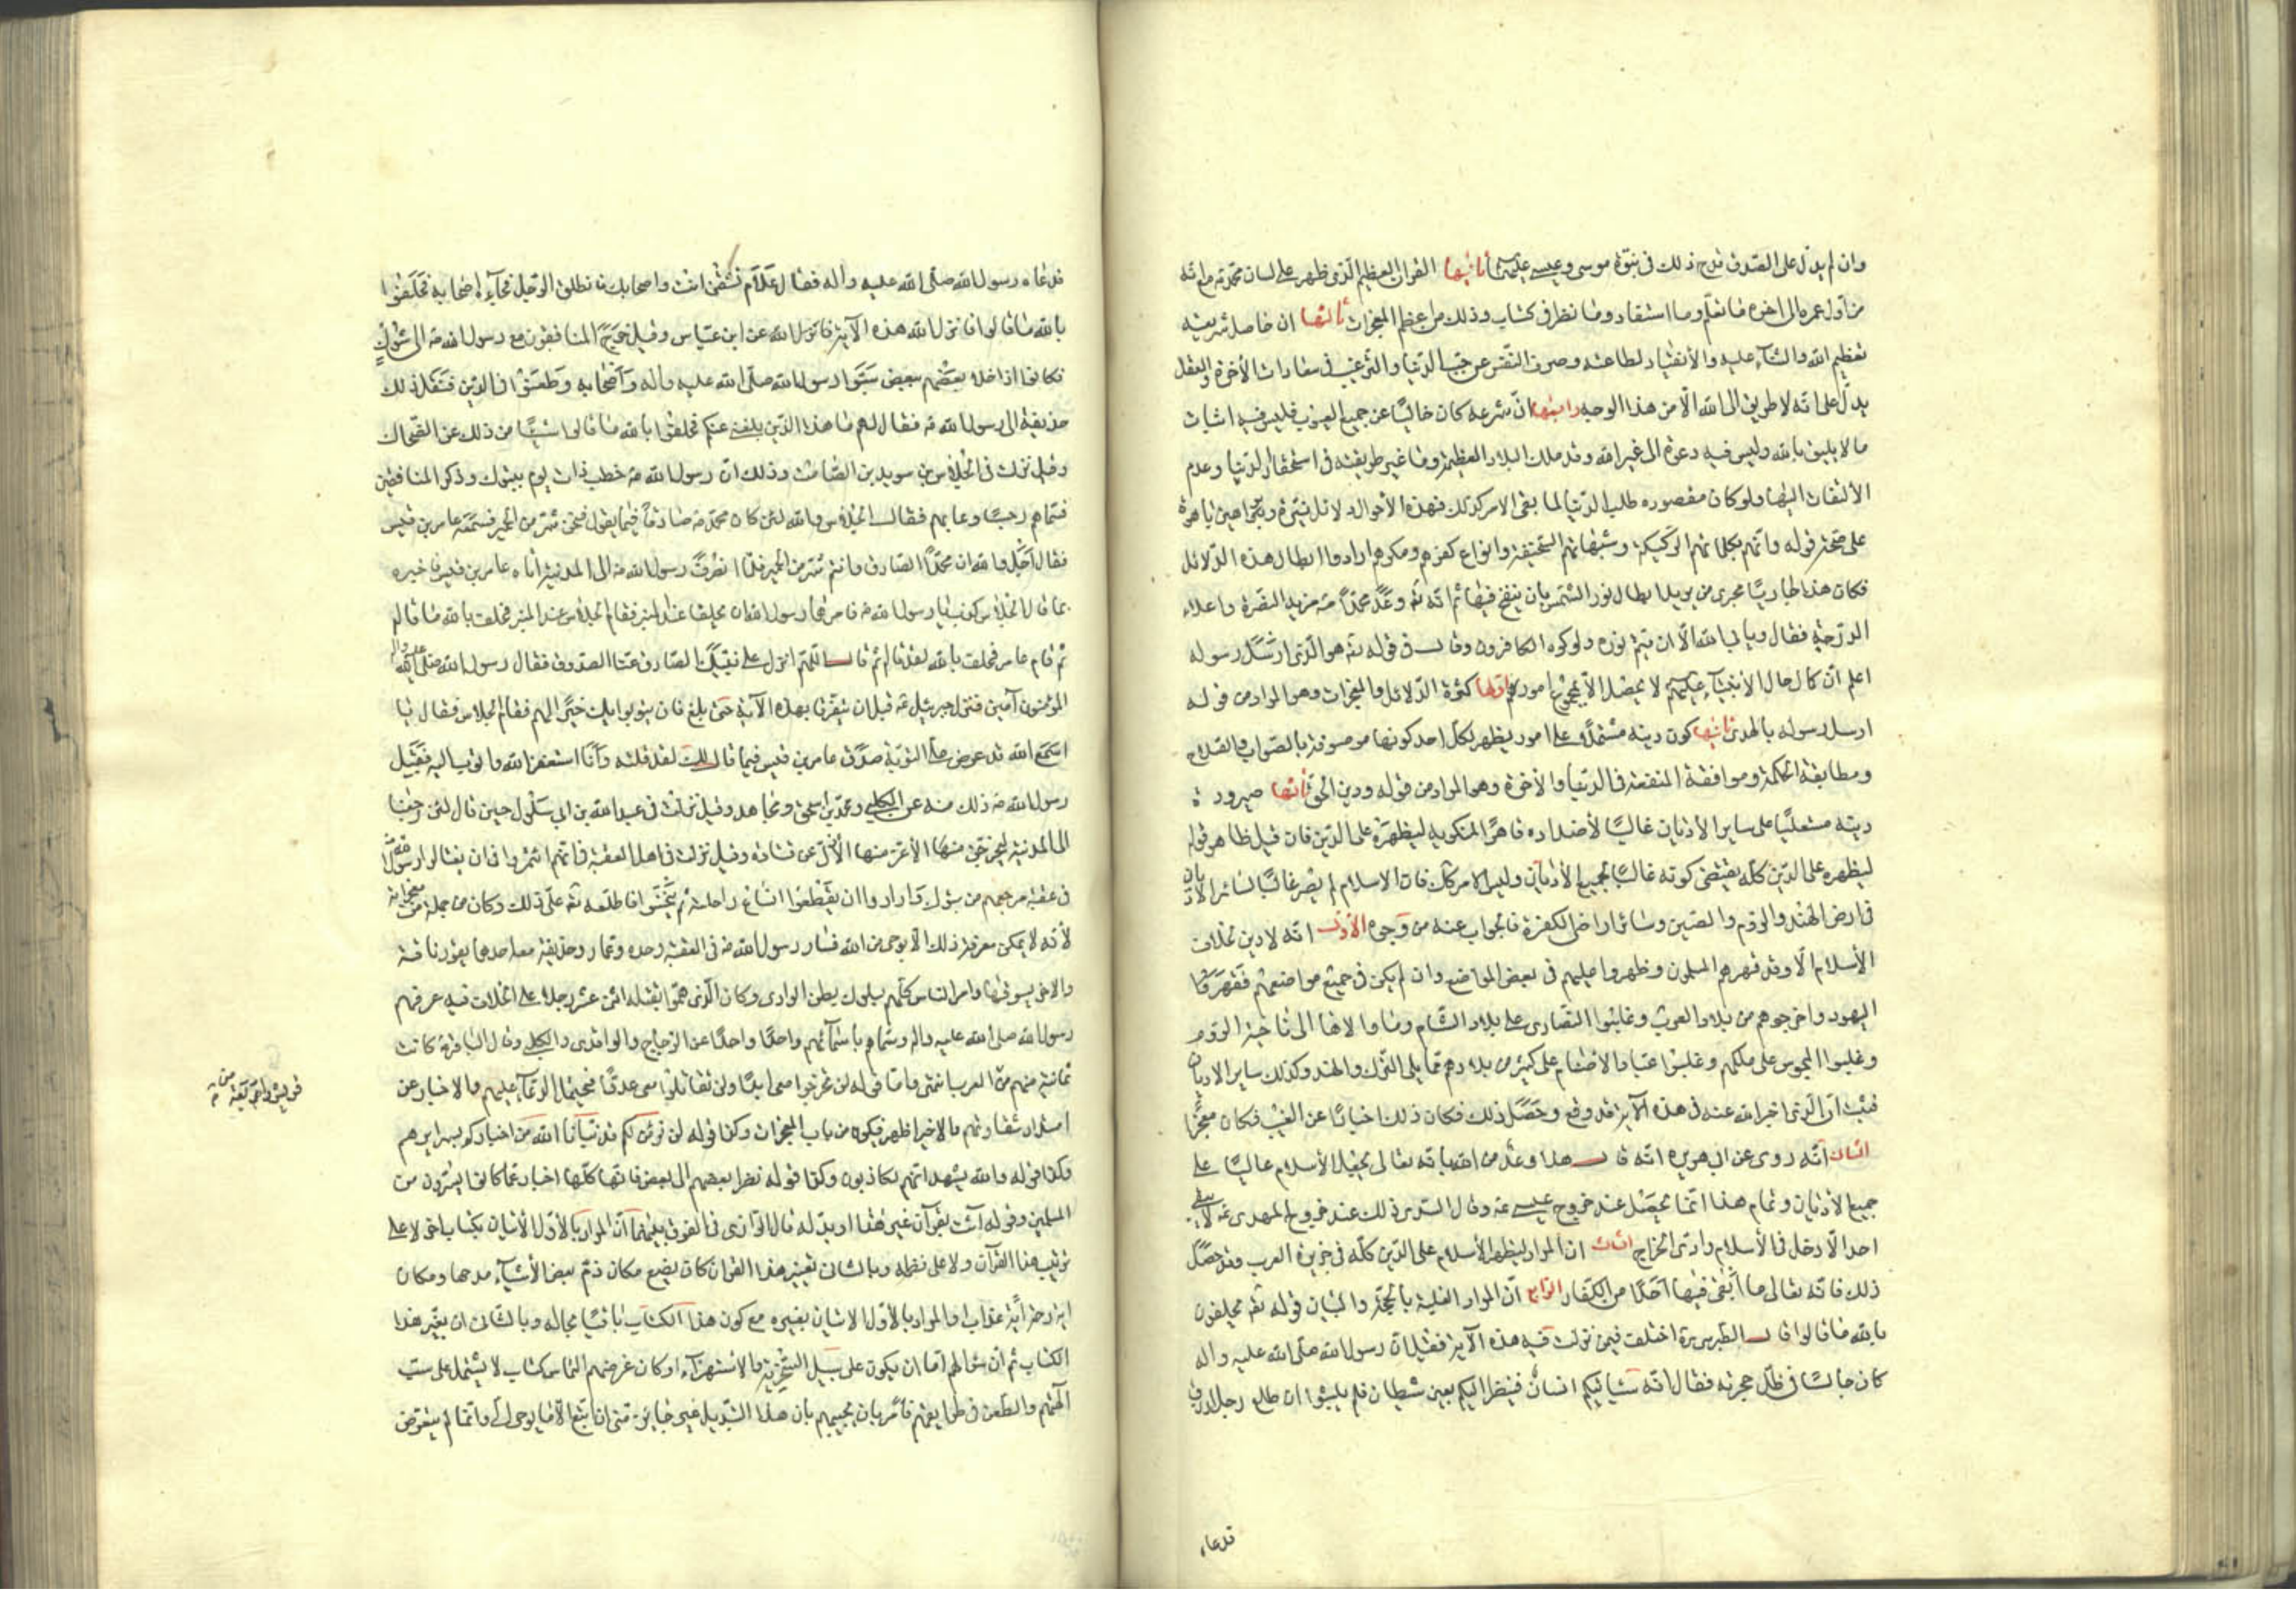 وان لم يدل على الصدق قدح ذلك في نبوة موسى وعيسى عليهما ثانيها القران العظيم الذي ظهر على لسان محمد ص مع انه
من اول عمره الى اخره ما تعلم وما استفاد وما نظر في كتاب وذلك من اعظم المعجزات ثالثها ان حاصل شريعته
تعظيم الله والثناء عليه والأنقياد لطاعته وصرف النفس عن حب الدنيا والترغيب في سعادات الأخرة والعقل
يدل على انه لا طريق الى الله الا من هذا الوجه رابعها ان شرعه كان خاليا عن جميع العيوب فليس فيه اثبات
ما لا يليق بالله وليس فيه دعوة الى غير الله وقد ملك البلاد العظيمة وما غير طريقته في استحقار الدنيا وعدم
الألتفات اليها ولو كان مقصوده طلب الدنيا لما بقى الامر كذلك فهذه الأحوال دلائل نيرة وبراهين باهرة
على صحة قوله وانهم بكلماتهم الركيكة وشبهاتهم السخيفة وانواع كفرهم ومكرهم ارادوا ابطال هذه الدلائل
فكان هذا جاريا مجرى من يريد ابطال نور الشمس بان ينفخ فيها ثم انه تع وعد محمدا ص مزيد النصرة واعلاء
الدرجة فقال ويابى الله الا ان يتم نوره ولو كره الكافرون وقال في قوله تع هو الذي ارسل رسوله
اعلم ان كمال حال الأنبياء عليهم لا يحصل الا بمجموع امور اولها كثرة الدلائل والمعجزات وهو المراد من قوله
ارسل رسوله بالهدى ثانيها كون دينه مشتملا على امور يظهر لكل احد كونها موصوفة بالصواب والصلاح
ومطابقة الحكمة وموافقة المنفعة في الدنيا والأخرة وهو المراد من قوله ودين الحق ثالثها صيرورة
دينه مستعليا على ساير الأديان غالبا لأضداده قاهرا لمنكريه ليظهره على الدين فان قيل ظاهر قوله
ليظهره على الدين كله يقتضى كونه غالبا لجميع الأديان وليس الامر كك فان الاسلام لم يصر غالبا لسائر الاديان
في ارض الهند والروم والصين وسائر اراضى الكفرة فالجواب عنه من وجوه الأول انه لا دين بخلاف
الأسلام الا وقد قهرهم المسلمون وظهروا عليهم في بعض المواضع وان لم يكن في جميع مواضعهم فقهروا
اليهود واخرجوهم من بلاد العرب وغلبوا النصارى على بلاد الشام وما والاها الى ناحية الروم
وغلبوا المجوس على ملكهم وغلبوا عباد الاصنام على كثير من بلادهم مما يلى الترك والهند وكذلك ساير الاديان
فثبت ان الذي اخبر الله عنه في هذه الآية قد وقع وحصل ذلك فكان ذلك اخبارا عن الغيب فكان معجزا
الثانى انه روى عن ابى هريرة انه قال هذا وعد من الله بانه تعالى يجعل الأسلام عاليا على
جميع الأديان وتمام هذا انما يحصل عند خروج عيسى ع وقال السدى ذلك عند خروج المهدى ع لا يبقى
احد الا دخل في الأسلام وادى الخراج الثالث ان المراد ليظهر الأسلام على الدين كله في جزيرة العرب وقد حصل
ذلك فانه تعالى ما ابقى فيها احدا من الكفار الرابع ان المراد الغلبة بالحجة والبيان قوله تع يحلفون
بالله ما قالوا قال الطبرسى ره اختلف فيمن نزلت فيه هذه الآية فقيل ان رسول الله صلى الله عليه واله
كان جالسا في ظل حجرته فقال انه سياتيكم انسان فينظر اليكم بعين شيطان فلم يلبثوا ان طلع رجل ازرق
فدعاه
فدعاه رسول الله صلى الله عليه واله فقال علام تشتمنى انت واصحابك فانطلق الرجل فجاء باصحابه فحلفوا
بالله ما قالوا فانزل الله هذه الآية عن ابن عباس وقيل خرج المنافقون مع رسول الله ص الى تبوك
فكانوا اذا خلا بعضهم ببعض سبوا رسول الله صلى الله عليه واله واصحابه وطعنوا في الدين فنقل ذلك
حذيفة الى رسول الله ص فقال لهم ما هذا الذي بلغنى عنكم فحلفوا بالله ما قالوا شيئا من ذلك عن الضحاك
وقيل نزلت في الجلاس بن سويد بن الصامت وذلك ان رسول الله ص خطب ذات يوم بتبوك وذكر المنافقين
فسماهم رجسا وعابهم فقال الجلاس والله لئن كان محمد ص صادقا فيما يقول فنحن شر من الحمير فسمعه عامر بن قيس
فقال اجل والله ان محمدا لصادق وانتم شر من الحمير فلما انصرف رسول الله ص الى المدينة اتاه عامر بن قيس فاخبره
بما قال الجلاس فقال كذب يا رسول الله ص فامرهما رسول الله ان يحلفا عند المنبر فقام الجلاس عند المنبر فحلف بالله ما قاله
ثم قام عامر فحلف بالله لقد قاله ثم قال اللهم انزل على نبيك الصادق منا الصدق فقال رسول الله صلى الله عليه واله
المؤمنون آمين فنزل جبرئيل ع قبل ان يتفرقا بهذه الآية حتى بلغ فان يتوبوا يك خيرا لهم فقام الجلاس فقال يا
اسمع الله قد عرض على التوبة صدق عامر بن قيس فيما قال لك لقد قلته وانا استغفر الله واتوب اليه فقبل
رسول الله ص ذلك منه عن الكلبى ومحمد بن اسحق ومجاهد وقيل نزلت في عبد الله بن ابى سلول حين قال لئن رجعنا
الى المدينة ليخرجن الأعز منها الأذل عن قتادة وقيل نزلت في اهل العقبة فانهم ائتمروا في ان يغتالوا رسول الله ص
في عقبة مرجعهم من تبوك وارادوا ان يقطعوا انساع راحلته ثم ينخسوا فاطلعه تع على ذلك وكان من جملة معجزاته
لأنه لا يمكن معرفة ذلك الا بوحى من الله فسار رسول الله ص في العقبة وحده وعمار وحذيفة معه احدهما يقود ناقته
والاخر يسوقها وامر الناس كلهم بسلوك بطن الوادى وكان الذى هموا بقتله اثنى عشر رجلا على الخلاف فيه عرفهم
رسول الله صلى الله عليه واله وسماهم باسمائهم واحدا واحدا عن الزجاج والواقدى والكلبى وقال الباقر ع كانت
ثمانية منهم من العرب انتهى واما قوله لن تخرجوا معى ابدا ولن تقاتلوا معى عدوا
من قريش واربعة من
اسرار وكذا قوله لن نؤمن لكم قد نبأنا الله من اخباركم
وكذا قوله والله يشهد انهم لكاذبون وكذا قوله نظر بعضهم الى بعض فانها كلها اخبار عما كانوا يسرون من
المسلمين وقوله ائت بقرآن غير هذا او بدله قال الرازى في الفرق بينهما ان المراد بالأول الأتيان بكتاب اخر لا على
ترتيب هذا القرآن ولا على نظمه وبالثانى تغيير هذا القران كان يضع مكان ذم بعض الأشياء مدحها ومكان
اية رحمة اية عذاب او المراد بالأول الاتيان بغيره مع كون هذا الكتاب باقيا بحاله وبالثانى ان يغير هذا
الكتاب ثم ان سؤالهم اما ان يكون على سبيل السخرية والأستهزاء او كان غرضهم التماس كتاب لا يشتمل على سب
آلهتهم والطعن في طرايقهم فامر بان يجيبهم بان هذا التبديل غير جايز منى ان اتبع الا ما يوحى الى وانما لم يتعرض